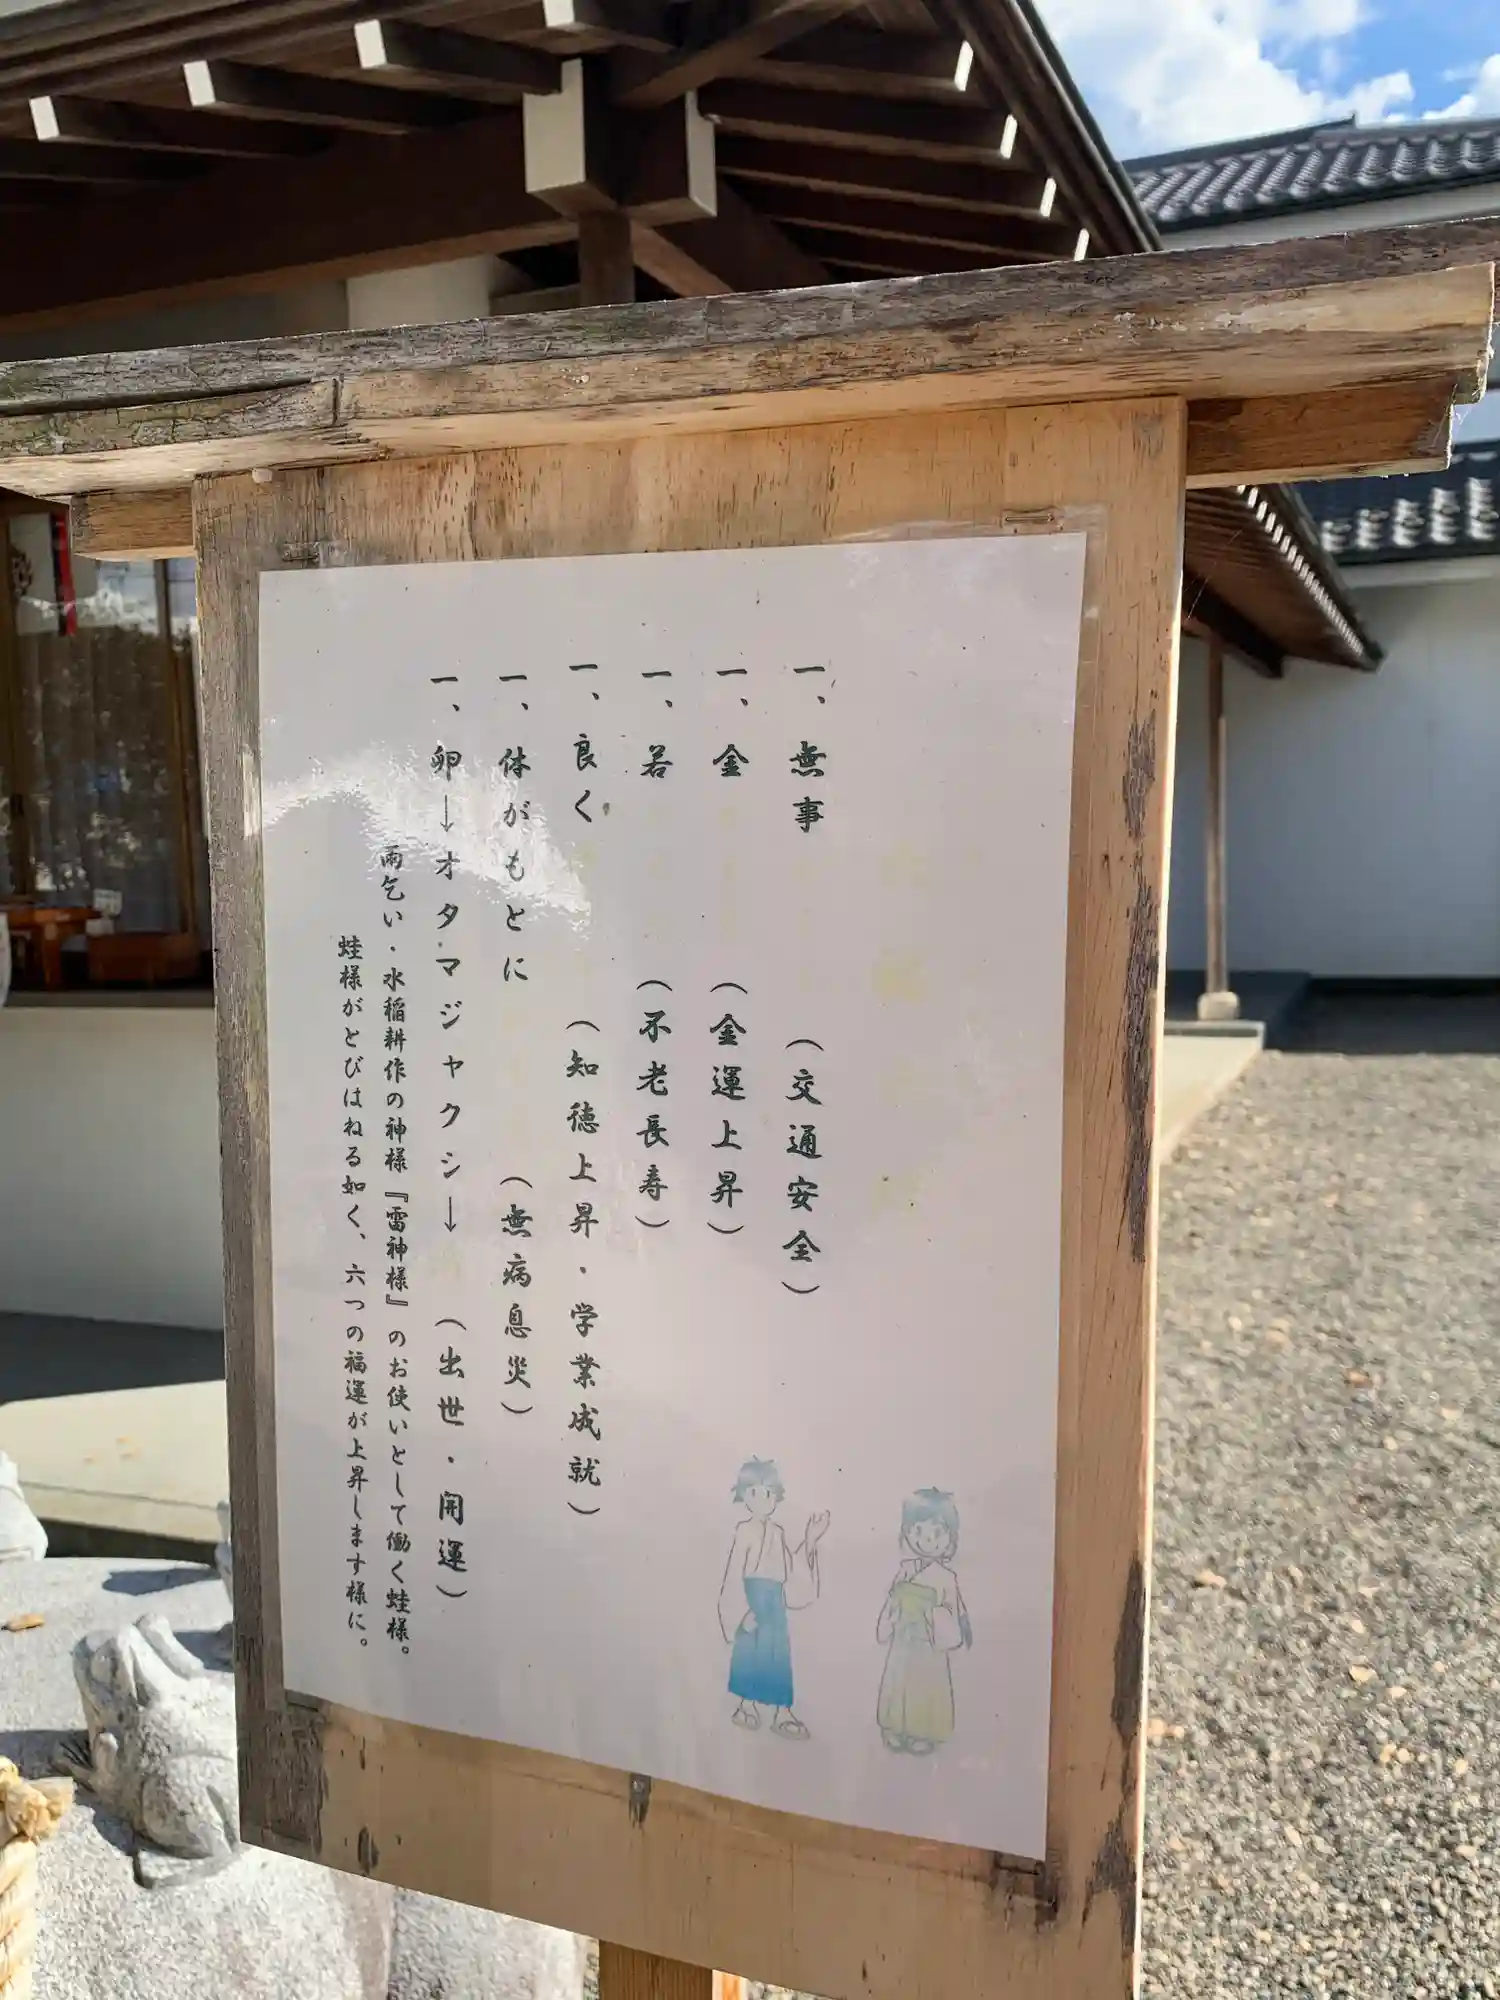 一、無事（交通安全）
一、金（金運上昇）
一、若（不老長寿）
一、良く（知徳上昇・学業成就）
一、体がもとに（無病息災）
一、卵→オタマジャクシ→（出世・開運）
雨乞い・水稲耕作の神様『雷神様』のお使いとして働く蛙様。
蛙様がとびはねる如く、六つの福運が上昇します様に。